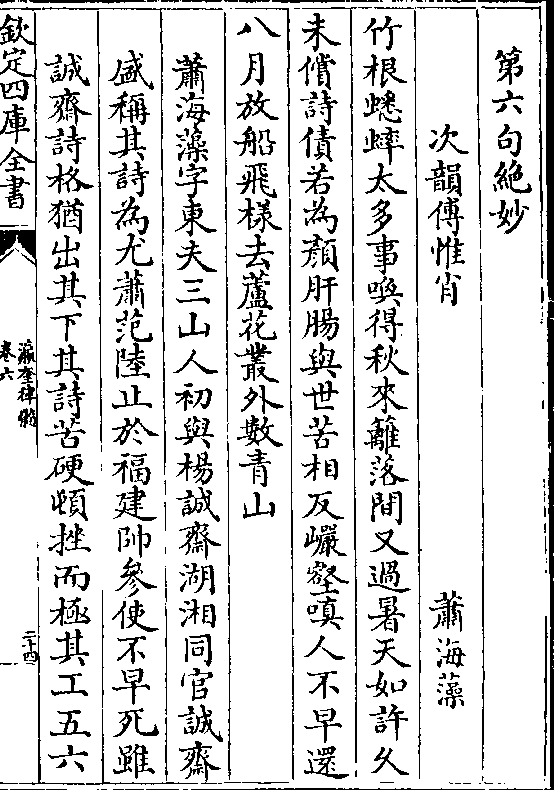 第六句絶妙
次韻傅惟肖　蕭海藻
竹根蟋蟀太多事喚得秋來籬落間又過暑天如許久
未償詩債若為顔肝腸與世苦相反巖壑嗔人不早還
八月放船飛樣去蘆花叢外數青山
蕭海藻字東夫三山人初與楊誠齋湖湘同官誠齋
盛稱其詩為尤蕭范陸止於福建帥參使不早死雖
誠齋詩格猶出其下其詩苦硬頓挫而極其工五六
欽定四庫全書
瀛奎律髓
卷六
二十四